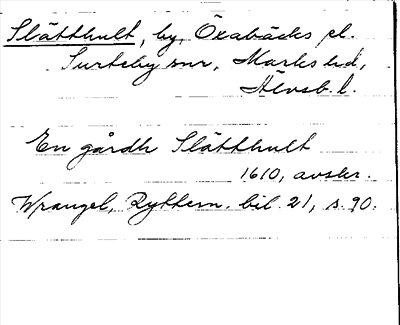 Slätthult, by, Öxabäcks sn.
Surteby snr, Marks hd,
Älvsb. l.
En gårdh Slätthult
1610, avskr.
Wrangel, Ryttern. bil. 21, s. 90.